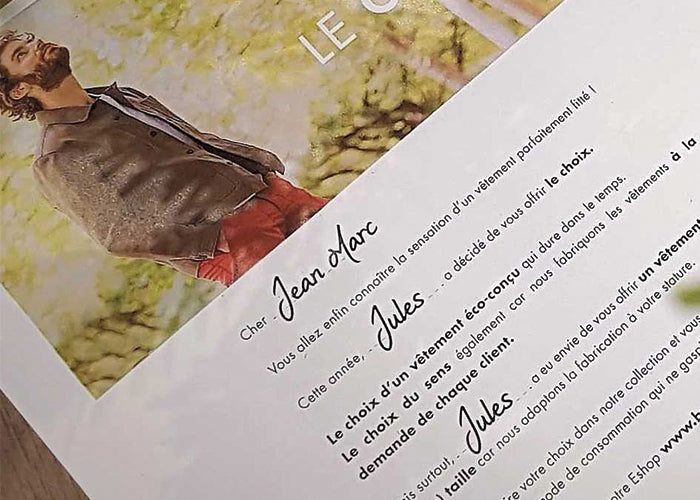 LE
Cher Jean Marc
Vous allez enfin connaître la sensation d'un vêtement parfaitement fitté !
Cette année, Jules a décidé de vous offrir le choix.
Le choix d'un vêtement éco-conçu qui dure dans le temps.
Le choix du sens également car nous fabriquons les vêtements à la
demande de chaque client.
is surtout, Jules a eu envie de vous offrir un vêtement
taille car nous adaptons la fabrication à votre stature.
votre choix dans notre collection et vous
ode de consommation qui ne gas
re Eshop www.b